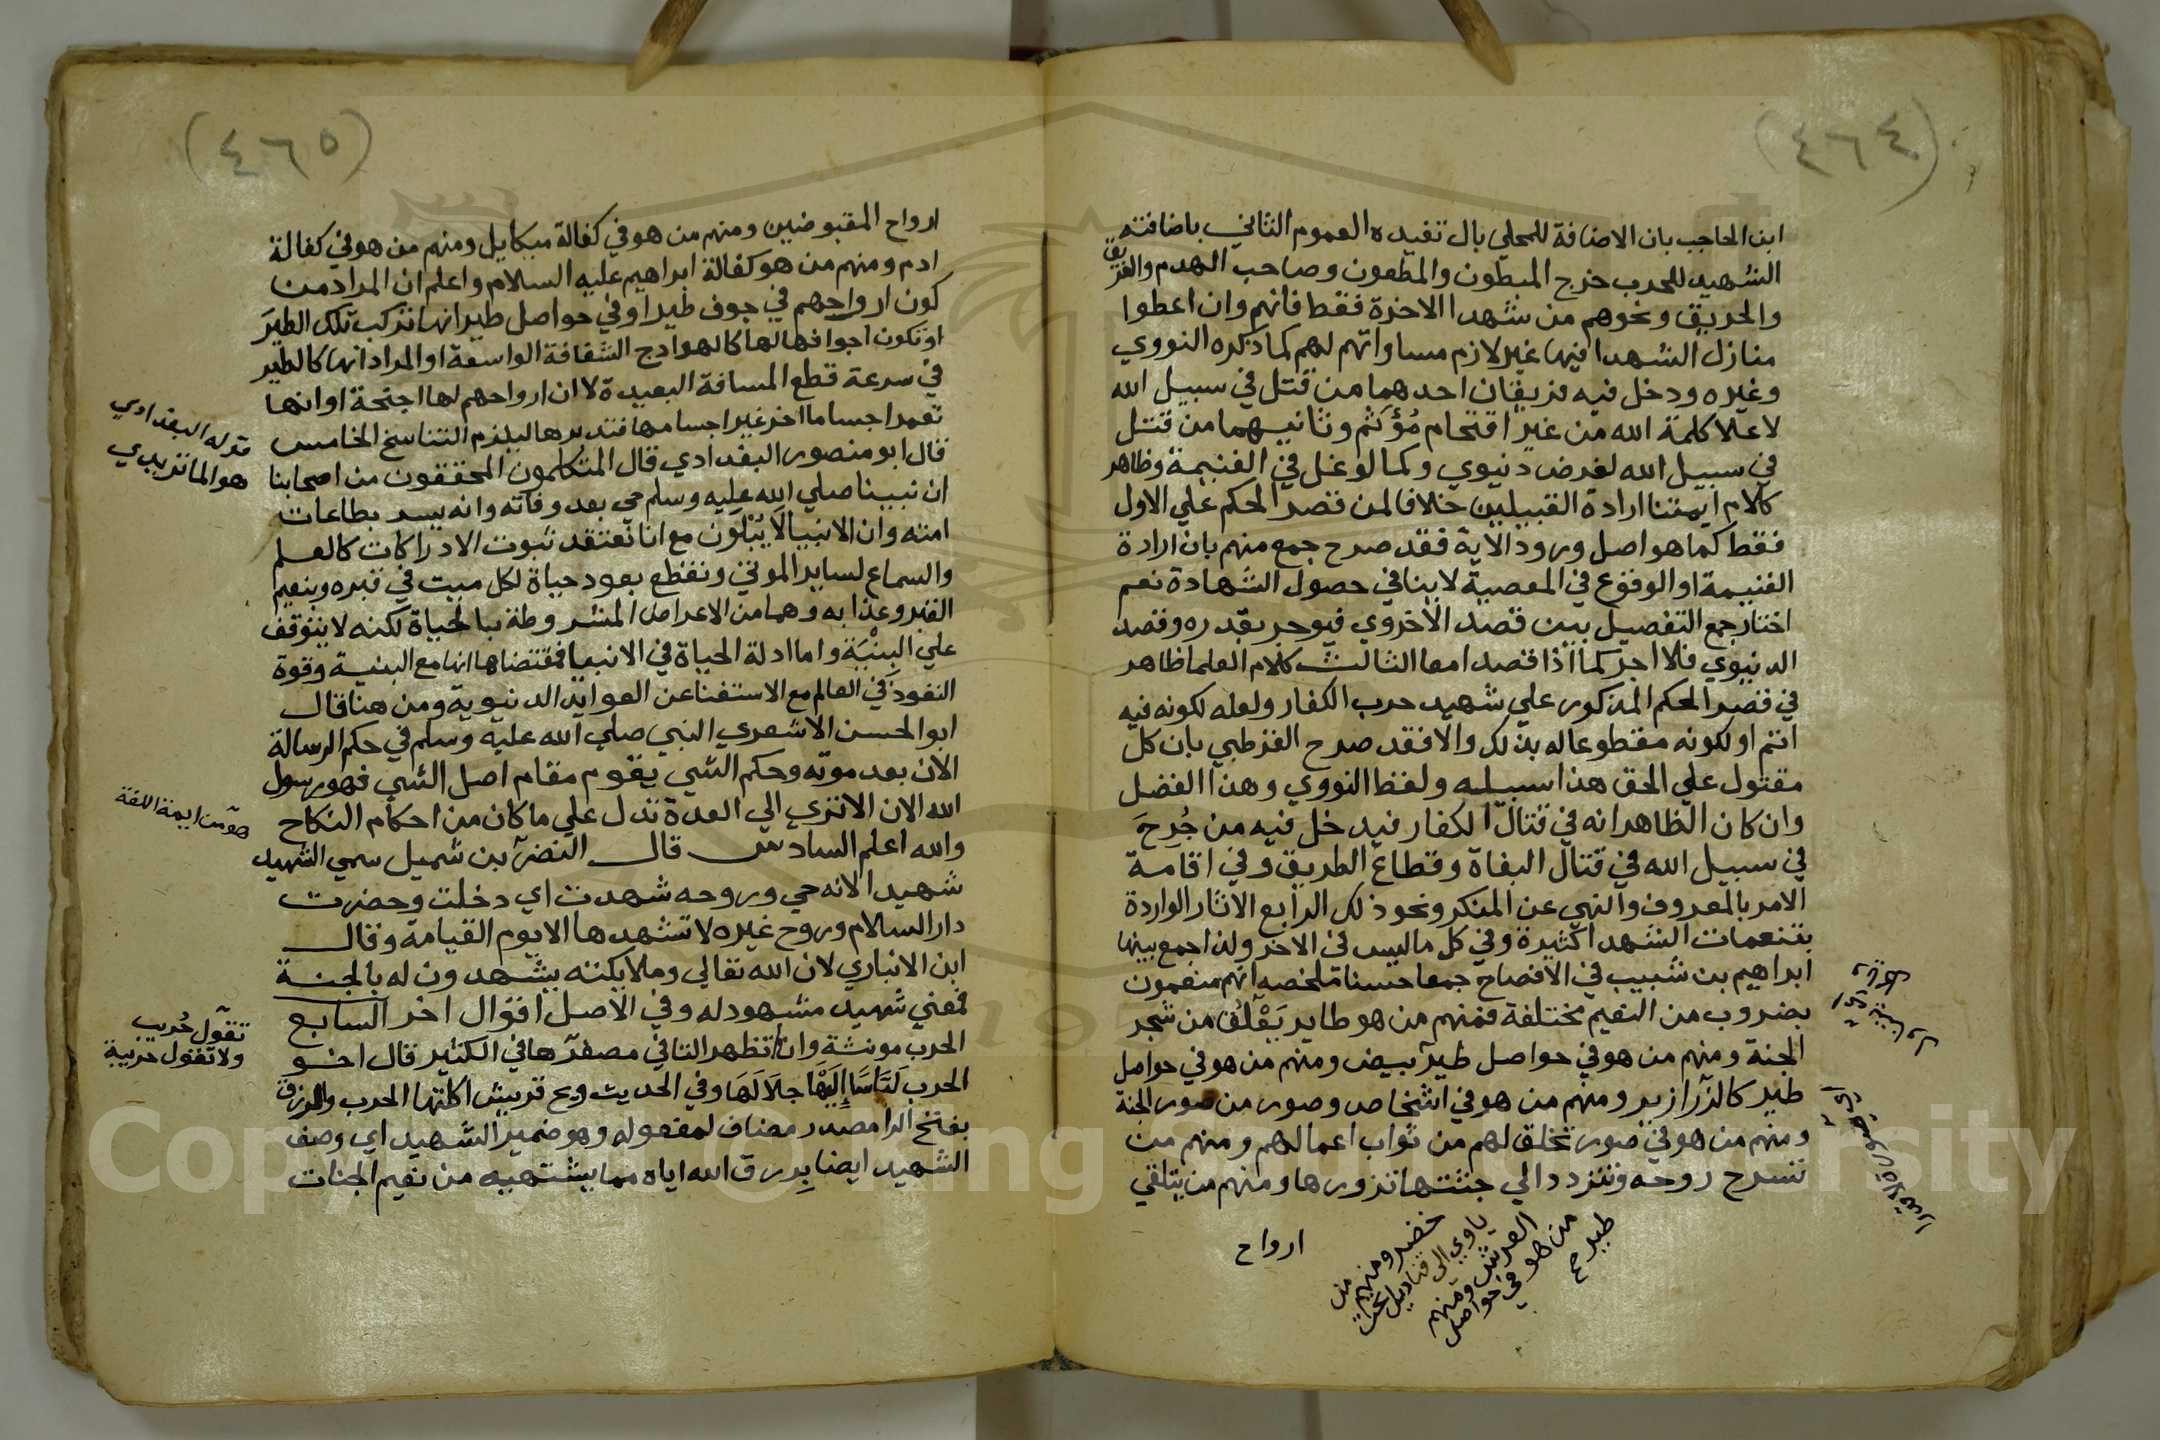 (٤٦٤)
ابن الحاجب بان الاضافة للمحلي بال تفيده العموم الثاني باضافته
الشهيد للحرب خرج المبطون والمطعون وصاحب الهدم والغريق
والحريق ونحوهم من شهدا الاخرة فقط فانهم وان اعطوا
منازل الشهدا فيها غير لازم مساواتهم لهم كما ذكره النووي
وغيره ودخل فيه فريقان احدهما من قتل في سبيل الله
لاعلا كلمة الله من غير اقتحام مُؤَثم وثانيهما من قتل
في سبيل الله لغرض دنيوي وكما لو غل في الغنيمة وظاهر
كلام ايمتنا ارادة القبيلين خلافا لمن قصر الحكم علي الاول
فقط كما هو اصل ورود الاية فقد صرح جمع منهم بان ارادة
الغنيمة او الوقوع في المعصية لا ينافي حصول الشهادة نعم
اختار جمع التفصيل بين قصد الاخروي فيوجر بقدره وقصد
الدنيوي فلا اجر كما اذا قصد امعا الثالث كلام العلما ظاهر
في قصر الحكم المذكور علي شهيد حرب الكفار ولعله لكونه فيه
اتم او لكونه مقطوعا له بذلك والا فقد صرح القرطبي بان كل
مقتول علي الحق هذا سبيله ولفظ النووي وهذا الفضل
وان كان الظاهر انه في قتال الكفار فيدخل فيه من جُرِحَ
في سبيل الله في قتال البغاة وقطاع الطريق وفي اقامة
الامر بالمعروف والنهي عن المنكر ونحو ذلك الرابع الاثار الواردة
بتنعمات الشهدا كثيرة وفي كل ما ليس في الاخر ولذا جمع بينها
ابراهيم بن شبيب في الافصاح جمعا حسنا ملخصه انهم منعمون
بضروب من النعيم مختلفة فمنهم من هو طاير يَعْلُقُ من شجر
الجنة ومنهم من هو في حواصل طير بيض ومنهم من هو في حواصل
طير كالزرازير ومنهم من هو في اشخاص وصور من صور الجنة
ومنهم من هو في صورة تخلق لهم من ثواب اعمالهم ومنهم من
تسرح روحه وتتردد الي جثتها تزورها ومنهم من يتلقي
خضر ومنهم من
ياوي الى قناديل تحت
العرش ومنهم
من هو في حواصل
طير صح
ارواح
(٤٦٥)
ارواح المقبوضين ومنهم من هو في كفالة ميكايل ومنهم من هو في كفالة
ادم ومنهم من هو كفالة ابراهيم عليه السلام واعلم ان المراد من
كون ارواحهم في جوف طير او في حواصل طير انها تركب تلك الطيرَ
او تكون اجوافها لها كالهوادج الشفافة الواسعة او المراد انها كالطير
في سرعة قطع المسافة البعيدة لا ان ارواحهم لها اجنحة او انها
تعمر اجساما اخر غير اجسامها فتدبرها ليلزم التناسخ الخامس
قال ابو منصور البغدادي قال المتكلمون المحققون من اصحابنا
ان نبينا صلي الله عليه وسلم حي بعد وفاته وانه يسر بطاعات
امته وان الانبيا لَا يُبْلَوْن مع انا نعتقد ثبوت الادراكات كالعلم
والسماع لساير الموتي ونقطع بعود حياة لكل ميت في قبره وبنعيم
القبر وعذابه وهما من الاعراض المشروطة بالحياة لكنه لا يتوقف
علي البِنْيَة واما ادلة الحياة في الانبيا فمقتضاها انها مع البنية وقوة
النفوذ في العالم مع الاستغنا عن العوايد الدنيوية ومن هنا قال
ابو الحسن الاشعري النبي صلي الله عليه وسلم في حكم الرسالة
الان بعد موته وحكم الشي يقوم مقام اصل الشي فهو رسول
الله الان الا تري الي العدة تدل علي ما كان من احكام النكاح
والله اعلم السادس قال النضر بن شميل سمي الشهيد
شهيدا لانه حي وروحه شهدت اي دخلت وحضرت
دار السلام وروح غيره لا تشهدها الا يوم القيامة وقال
ابن الانباري لان الله تعالي وملايكته يشهدون له بالجنة
فمعني شهيد مشهود له وفي الاصل اقوال اخر السابع
الحرب مونثة وان لم تظهر التا في مصغرها في الكثير قال اخو
الحرب لَبَّاسًا إِلَيْهَا جلَالَهَا وفي الحديث ويح قريش اكلتها الحرب والرزق
بفتح الرا مصدر مضاف لمفعوله وهو ضمير الشهيد اي وصف
الشهيد ايضا برزق الله اياه مما يشتهيه من نعيم الجنات
قوله البغدادي
هو الماتريدي
هو من ايمة اللغة
تقول حُريب
ولا تقول حريبة
Copyright © King Saud University